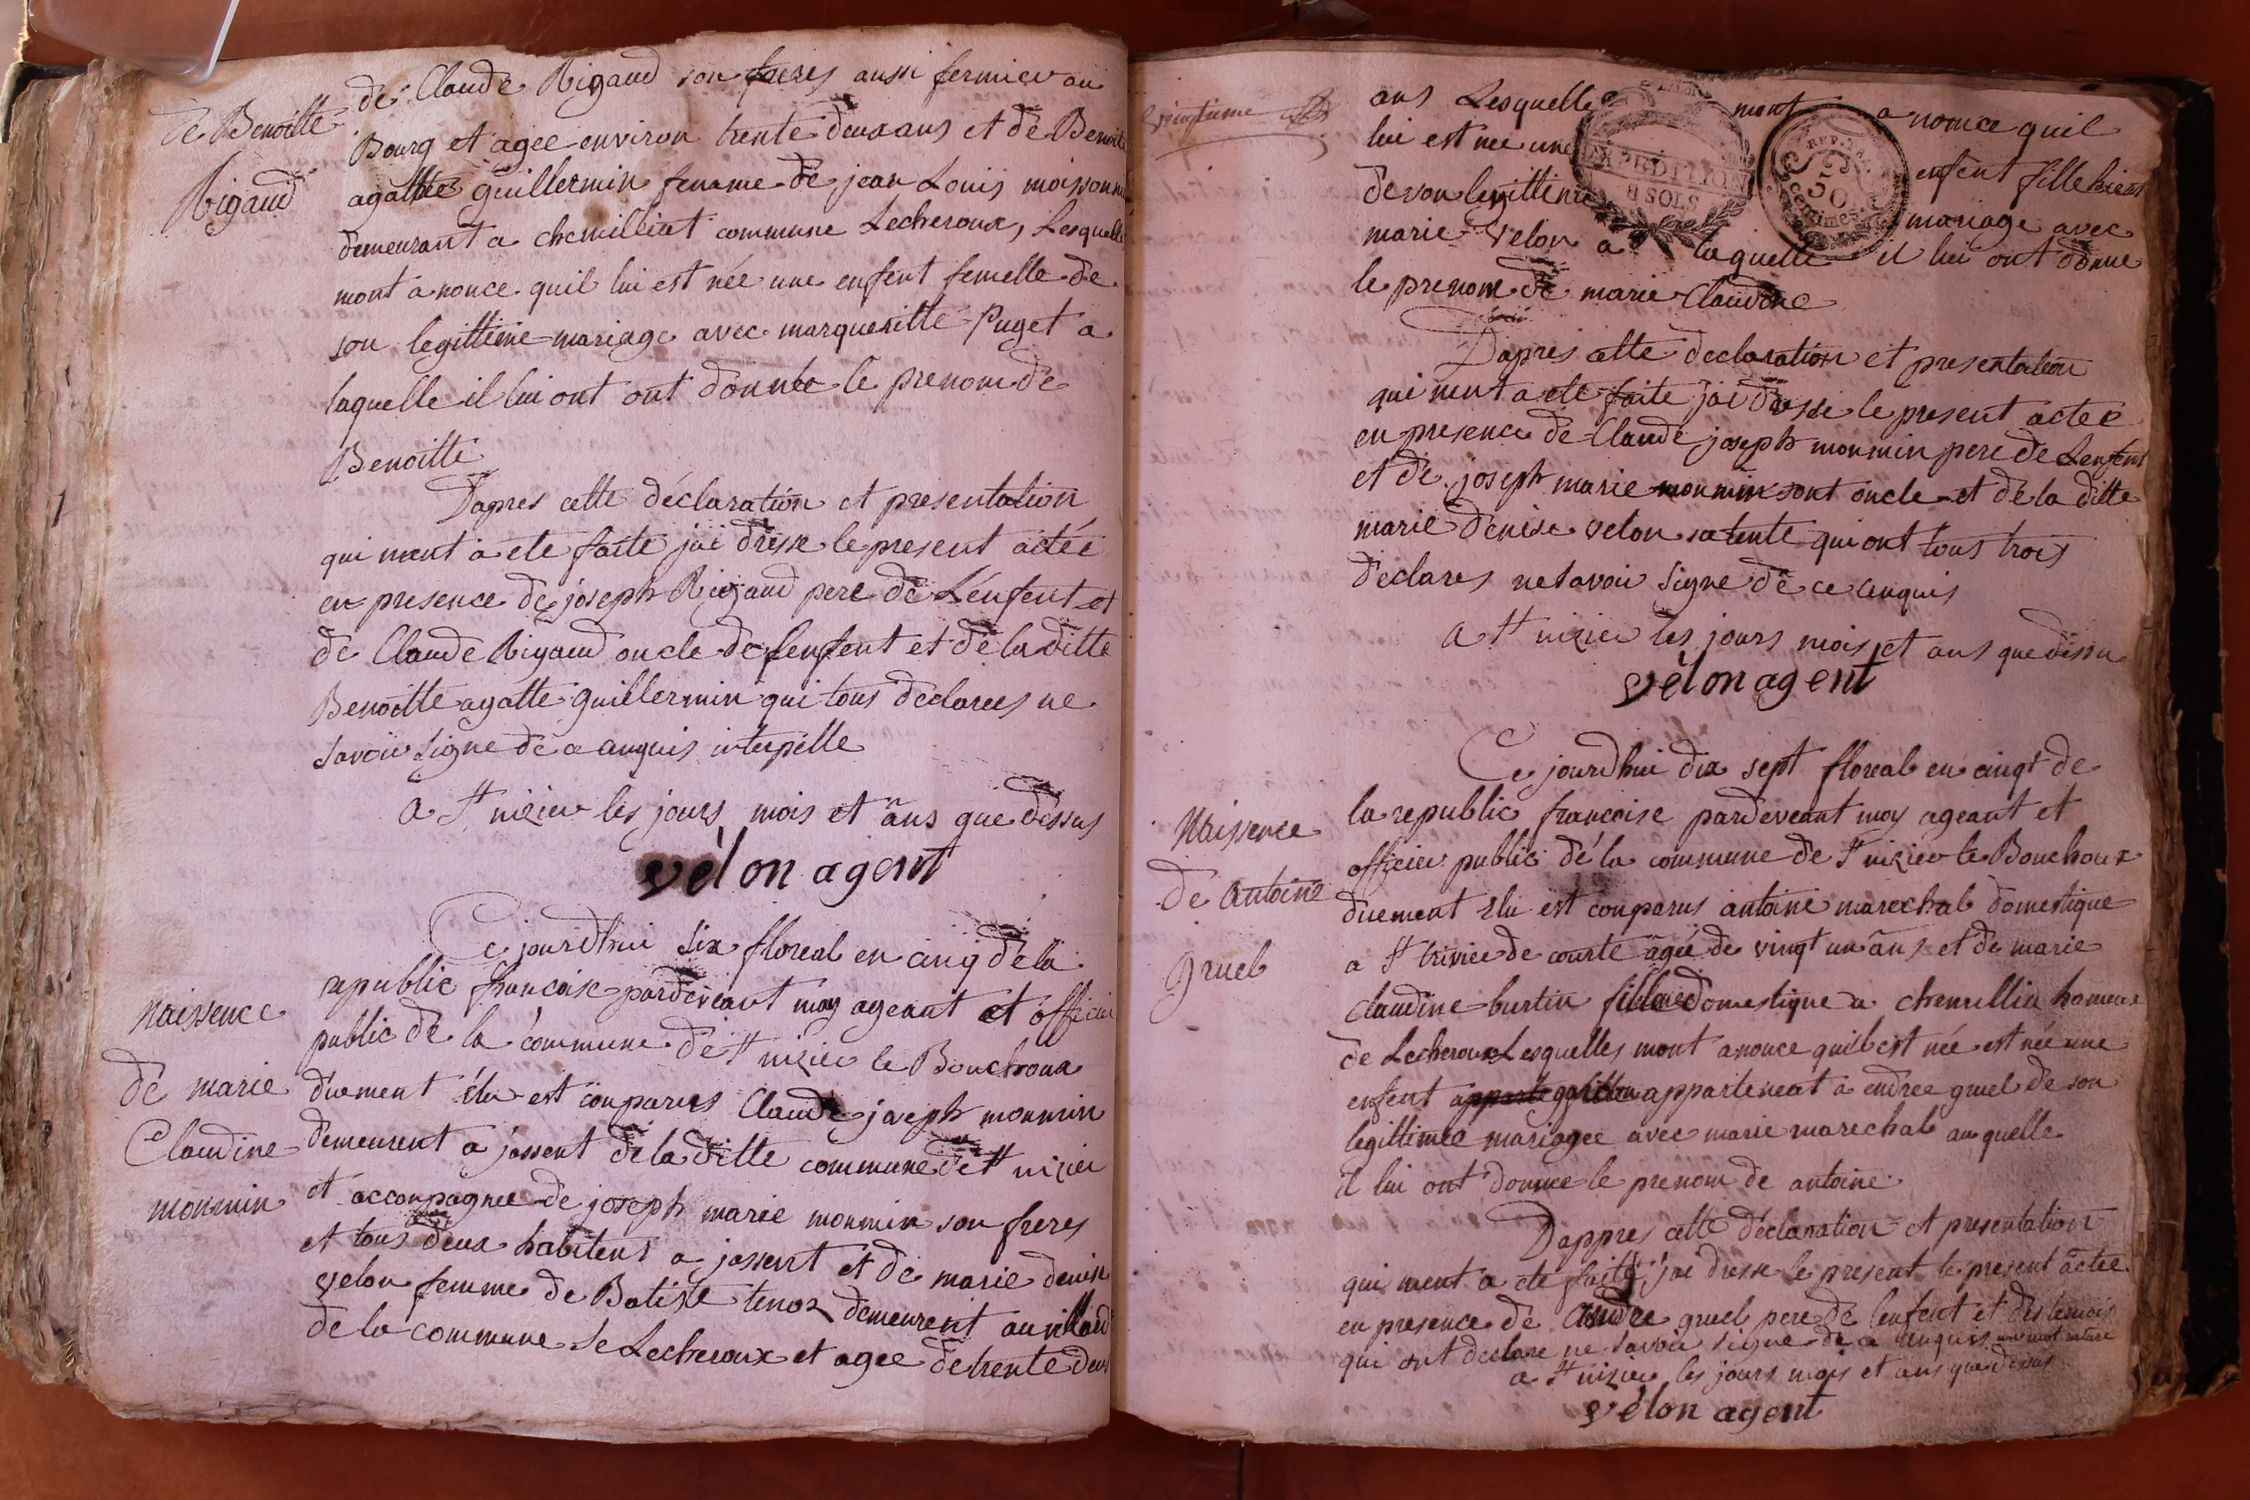 de Benoitte
Rigaud
de Claude Rigaud son freres aussi fermier au
Bourg et agee environ trente deux ans et de Benoite
agathe guillermin femme de jean Louis moissonni
demeurant a chemilliat commune Lecheroux, Lesquelle
mont anonce quil lui est née une enfent femelle de
son legittime mariage avec marguerite Puget a
laquelle il lui ont ont donnée le prenom de
Benoitte
Dapres cette déclaration et presentation
qui ment a ete faite jai dresse le present actée
en presence de joseph Rigaud pere de Lenfent et
de Claude Rigaud oncle de lenfent et de la ditte
Benoitte agatte guillermin qui tous declarees ne
savoir signe de ce anquis interpelle
a St nizier les jours mois et ans que dessus
vélon agent
naissence
de marie
Claudine
monmin
Ce jourdhui six floreal en cinq de la
republic francoise pardeveant moy ageant et officier
public de la commune de St nizier le Bouchoux
duement élu est comparus Claude joseph monmin
demeurent a jassent de la ditte commune de St nizier
et accompagnee de joseph marie monmin son freres
et tous deux habitent a jassent et de marie denise
velon femme de Batiste tenox demeurent au villard
de la commune de Lecheroux et agee de trente deux
vingtieme
ans Lesquelle mont a nonce quil
lui est nee une enfent fille hiers
de son legittime mariage avec
marie velon a laquelle il lui ont donne
le prenom de marie Claudine
EXPÉDITION
8 SOLS
REP. FRA.
50
centimes
Dapres cette declaration et presentation
qui ment a ete faite jai dresse le present actee
en presence de Claude joseph monmin pere de Lenfent
et de joseph marie monmin sont oncle et de la ditte
marie denise velon sa tente qui ont tous trois
declares ne savoir signe de ce enquis
a St nizier les jours mois et ans que dessu
vélon agent
Naissence
de antoine
gruel
Ce jourdhui dix sept floreal en cinqt de
la republic francoise pardeveant moy ageant et
officier public de la commune de St nizier le Bouchoux
duement élu est comparus antoine marechal domestique
a St trivier de courte agée de vingt un ans et de marie
claudine burtin fille domestique a chemillia hameux
de Lecheroux Lesquelles mont anonce quil est née est née une
enfent appartenent a endree gruel de son
legittimee mariagee avec marie marechal au quelle
il lui ont donnee le prenom de antoine
Dappres cette déclaration et presentation
qui ment a ete faite jai dresse le present le present actee
en presence de andre gruel pere de lenfent et des temois
qui ont declare ne savoir signe de ce enquis
a St nizier les jours mois et ans que dessus
vélon agent